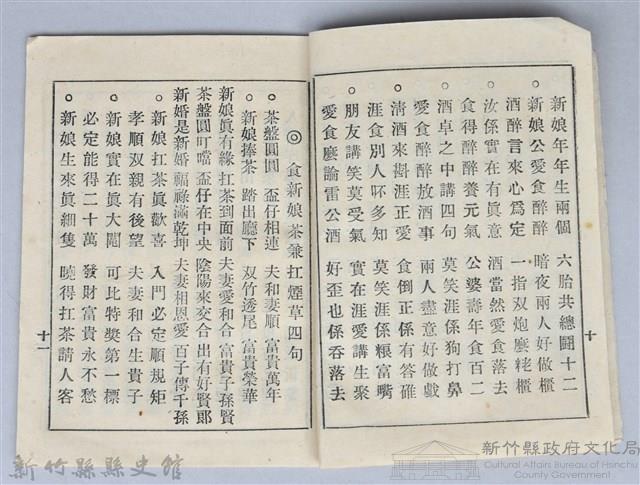 新娘年年生兩個 六胎共總鬪十二
○新娘公愛食醉醉 暗夜兩人好做櫃
酒醉言來心為定 一指双炮粩櫃
○汝係實在有眞意 酒當然愛食落去
食得醉醉養元氣 公婆壽年食百二
○酒卓之中講四句 莫笑涯係狗打鼻
愛食醉醉放酒事 兩人盡意好做戲
○淸酒來涯正愛 食倒正係有答碓
涯食別人吥多知 莫笑涯係富嘴
○朋友講笑莫受氣 實在涯愛講生聚
愛食論雷公酒 好歹也係吞落去
十
◎食新娘茶兼扛煙草四句
○茶盤圓圓 盃仔相連 夫和妻順 富貴萬年
○新娘捧茶 踏出廳下 双竹透尾 富貴榮華
新娘眞有緣 扛茶到面前 夫妻愛和合 富貴子孫賢
茶盤圓叮噹 盃仔在中央 陰陽來交合 出有好賢郎
新婚是新婚 福祿滿乾坤 夫妻相恩愛 百子傳千孫
○新娘扛茶眞歡喜 入門必定順規矩
孝順双親有後望 夫妻和合生貴子
○新娘實在眞大閣 可比特奬第一標
必定能得二十萬 發財富貴永不愁
○新娘生來眞細隻 曉得扛茶請人客
十一
新竹縣縣史館
新竹縣政府文化局
Cultural Affairs Bureau of Hsinchu
County Government